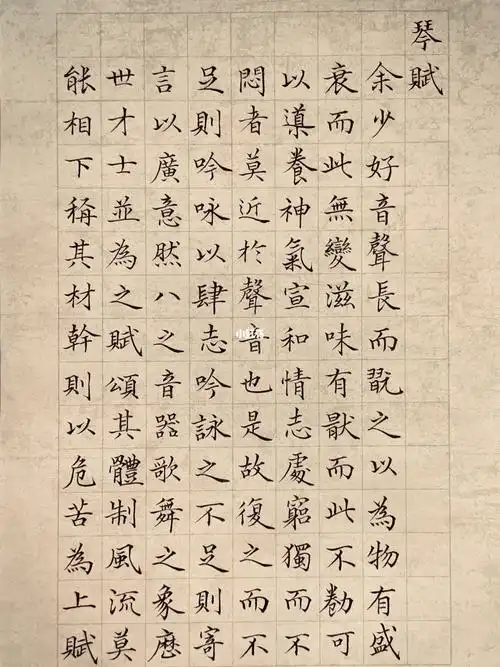 琴賦
余少好音聲長而翫之以為物有盛
衰而此無變滋味有猒而此不勌可
以導養神氣宣和情志處窮獨而不
悶者莫近於聲音也是故復之而不
足則吟咏以肆志吟詠之不足則寄
言以廣意然八之音器歌舞之象歷
世才士並為之賦頌其體制風流莫
能相下稱其材幹則以危苦為上賦
小红书